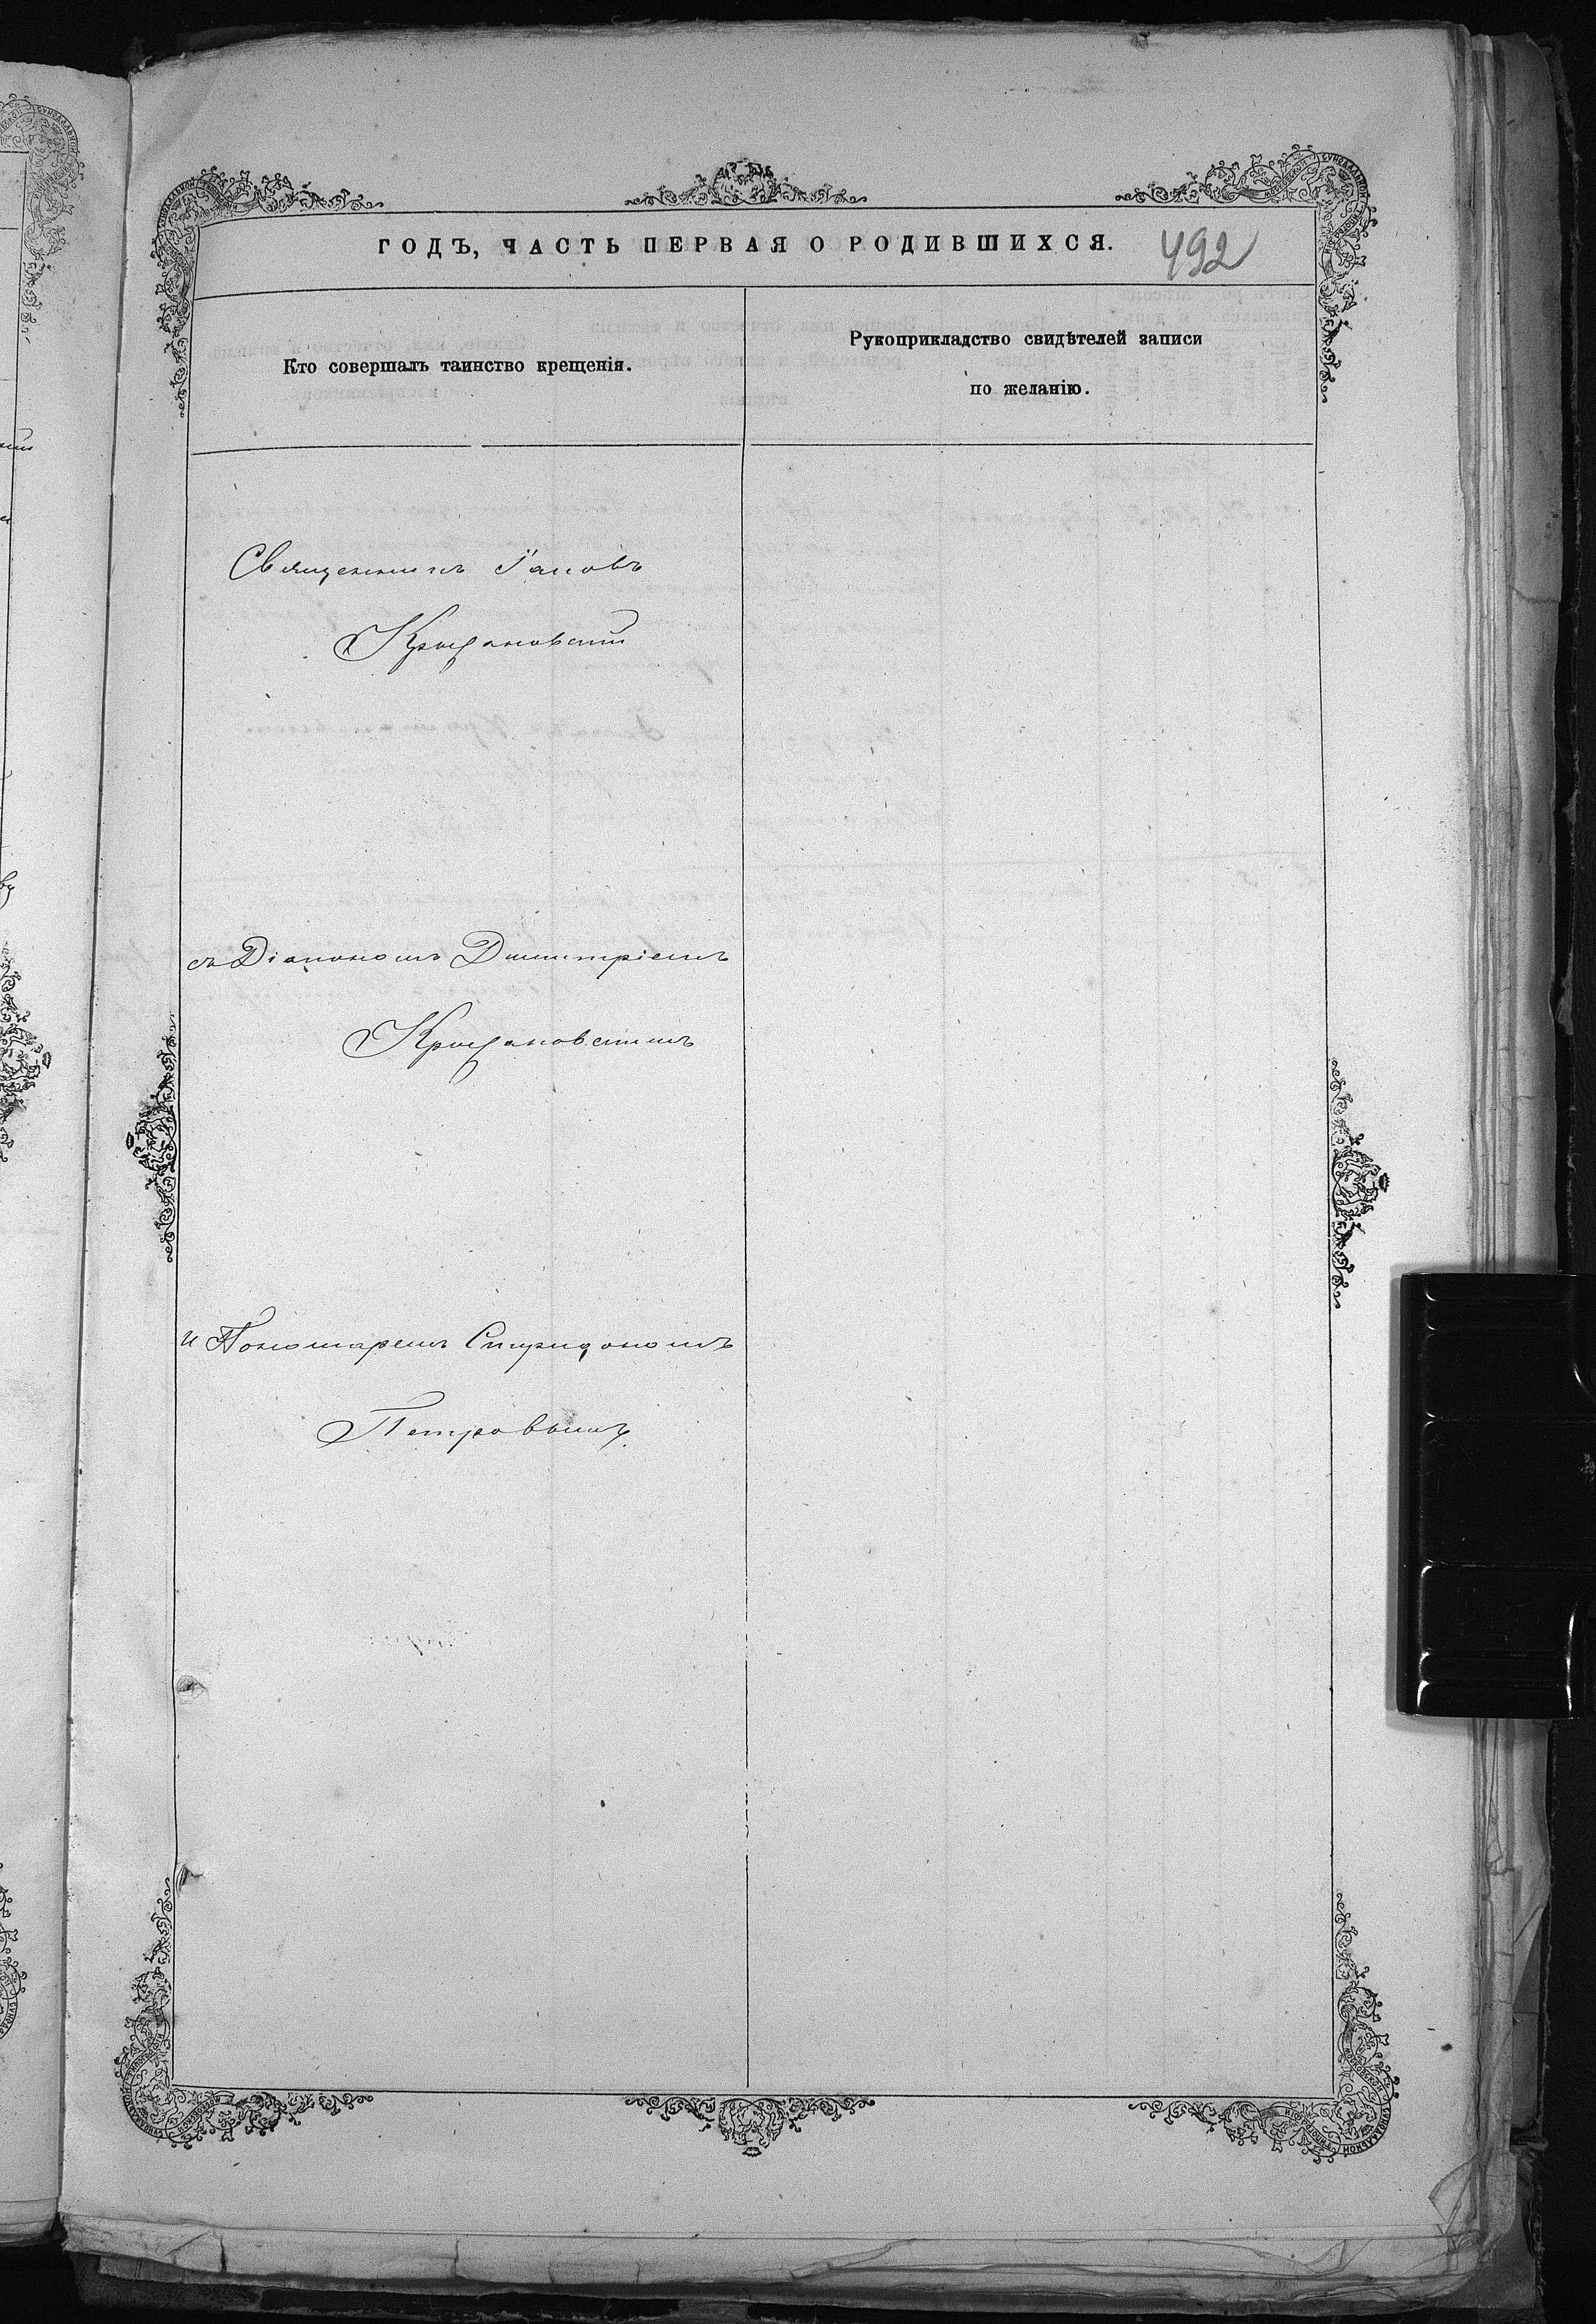 ГОДЪ, ЧАСТЬ ПЕРВАЯ О РОДИВШИХСЯ. 492
Кто совершалъ таинство крещенія.
Рукоприкладство свидѣтелей записи
по желанію.
Священникъ Іаковъ
Крыжановскій
съ Діакономъ Димитріемъ
Крыжановскимъ
и Пономаремъ Спиридономъ
Петровымъ